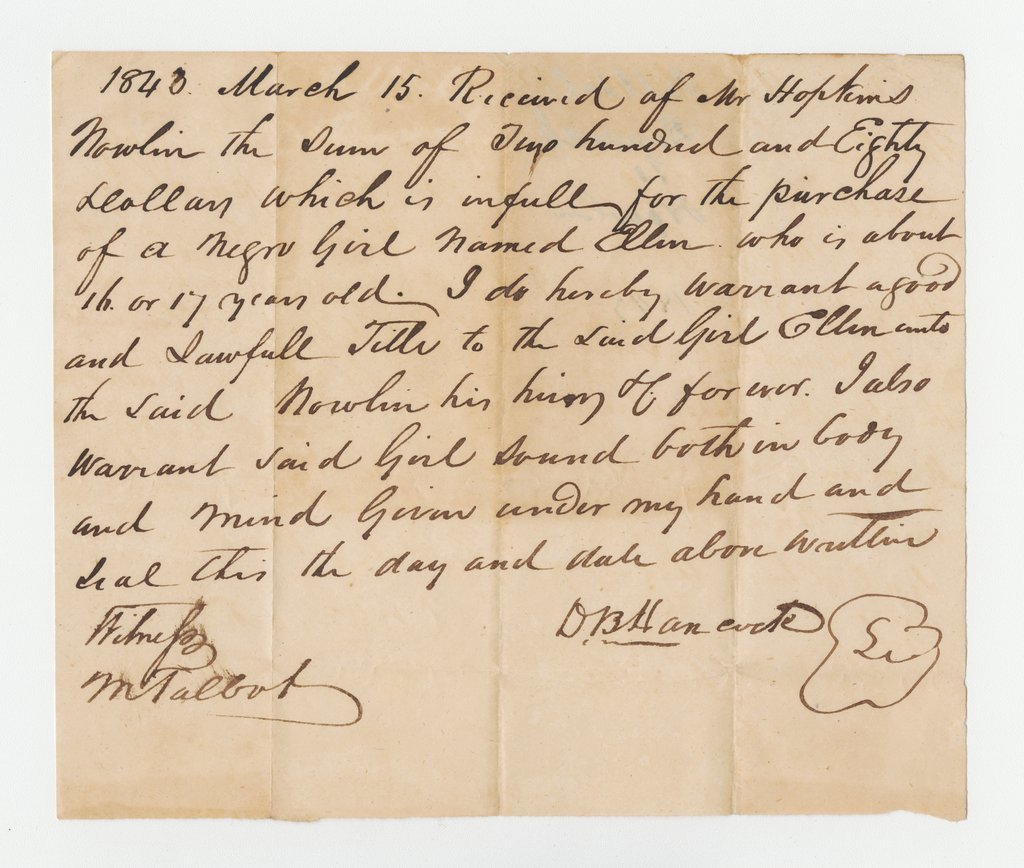 1843. March 15. Received of Mr Hopkins
Nowlin the Sum of Two hundred and Eighty
Dollars which is infull for the purchase
of a Negro Girl Named Ellen who is about
16. or 17 years old. I do hereby warrant a good
and Lawfull Title to the said Girl Ellen unto
the said Nowlin his heirs &c for ever. I also
warrant said Girl Sound both in body
and mind Given under my hand and
Seal this the day and date above written
D.B. Hancock
Witness
M Talbot